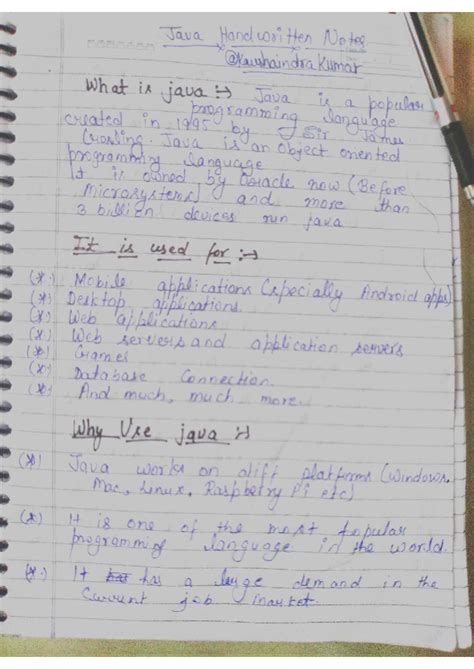 Java Handwritten Notes
@KaushaindraKumar
What is java :→ Java is a popular
programming language
created in 1995 by Sir James
Gosling. Java is an Object oriented
programming language
It is owned by Oracle now (Before
Microsystems) and more than
3 billion devices run java
It is used for :→
(*) Mobile applications (specially Android apps)
(*) Desktop applications.
(*) Web applications
(*) Web servers and application servers
(*) Games
(*) Database Connection.
(*) And much, much more.
Why Use java :→
(*) Java works on diff platforms (windows,
Mac, Linux, Raspberry Pi etc)
(*) It is one of the most popular
programming language in the world.
(*) It has a large demand in the
current job market.